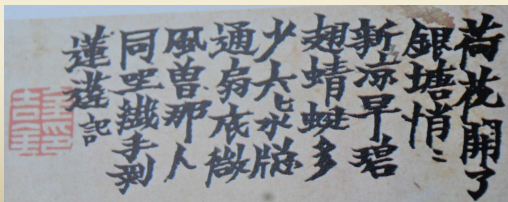 荷花開了
銀塘悄〻
新凉早碧
翅蜻蜓多
少六〻水牕
通扇底微
風曽那人
同坐纖手剝
蓮蓬 記